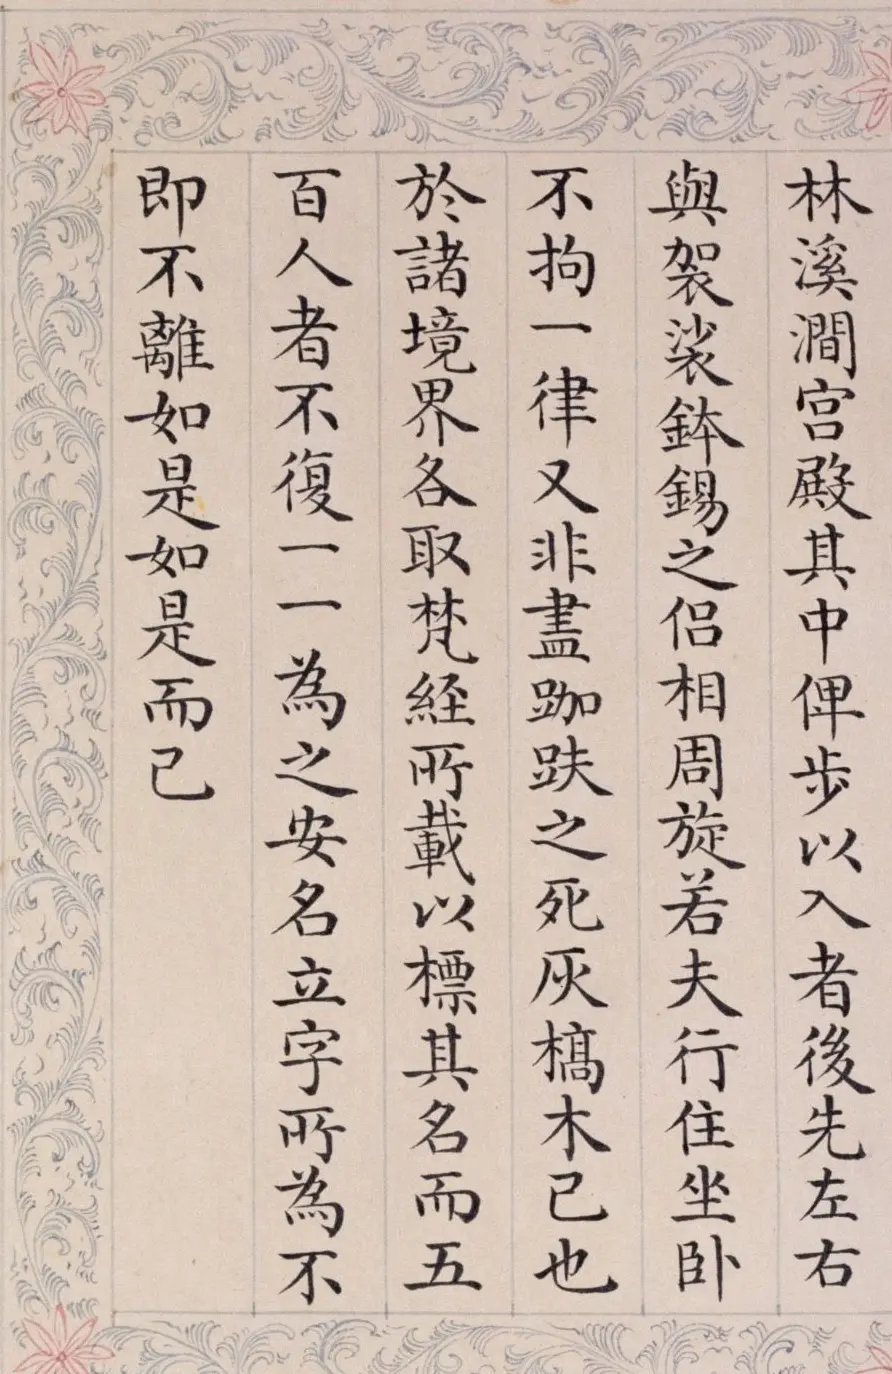 林溪澗宫殿其中俾步以入者後先左右
與袈裟鉢錫之侣相周旋若夫行住坐卧
不拘一律又非盡跏趺之死灰槁木已也
於諸境界各取梵經所載以標其名而五
百人者不復一一為之安名立字所為不
即不離如是如是而已